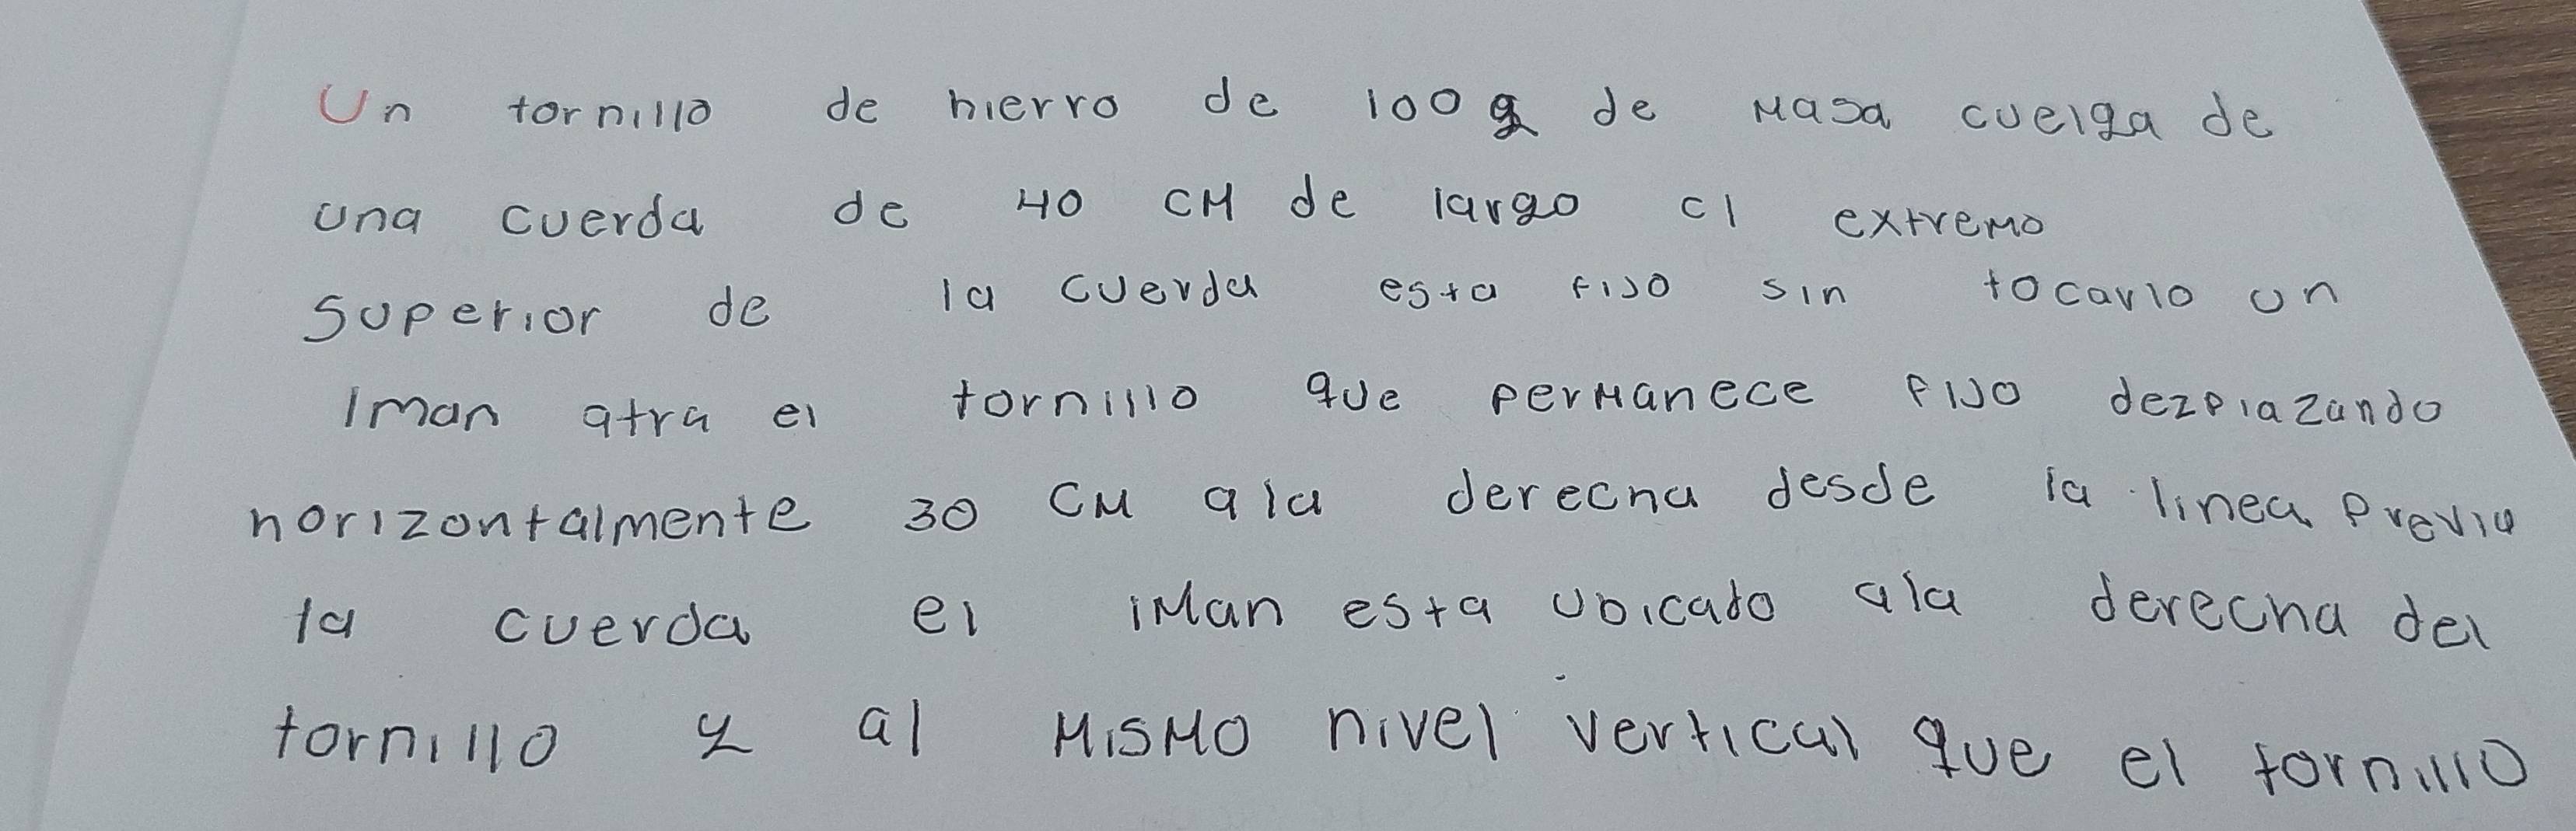 Un tornillo de hierro de 100 g de masa cuelga de
una cuerda de 40 cm de largo el extremo
superior de la cuerda esta fijo sin tocarlo un
Iman atra el tornillo que permanece fijo dezplazando
horizontalmente 30 cm ala derecha desde la linea previa
la cuerda el iman esta ubicado ala derecha del
tornillo y al mismo nivel vertical que el tornillo